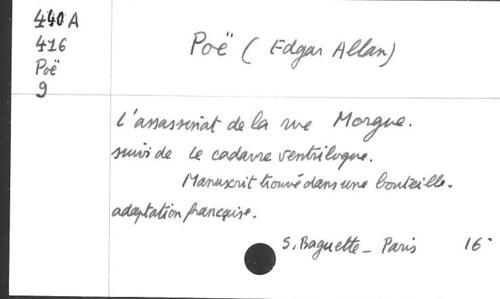 440 A
416
Poë
9
Poë ( Edgar Allan)
L'assassinat de la rue Morgue.
suivi de le cadavre ventriloque.
Manuscrit trouvé dans une bouteille.
adaptation française.
S. Baguette - Paris 16°